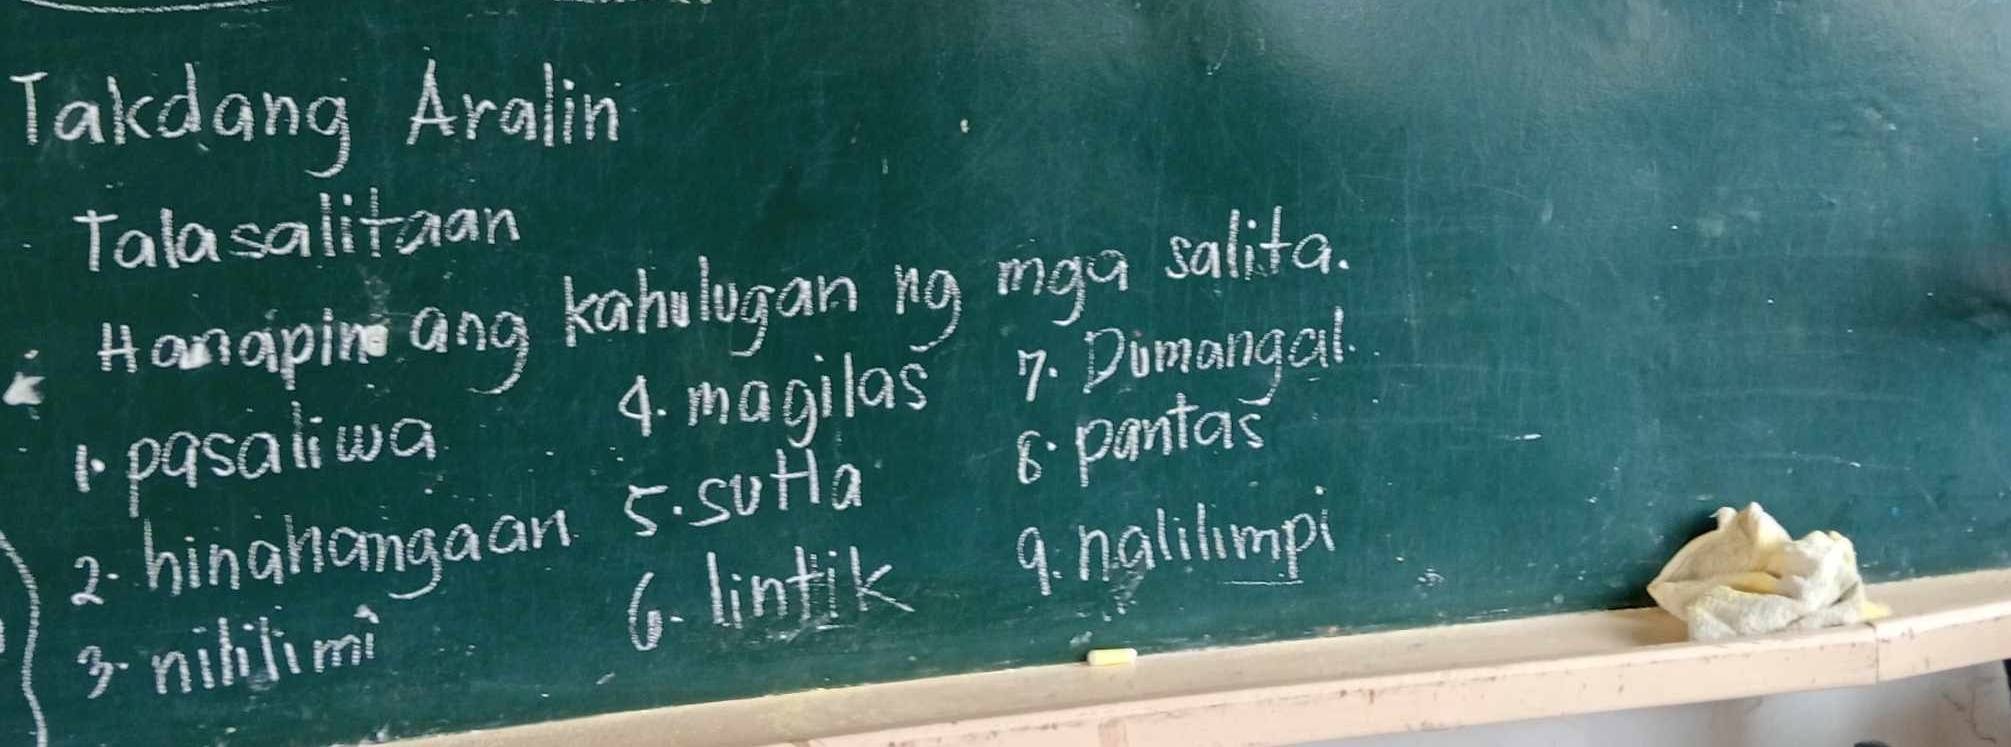 Takdang Aralin
Talasalitaan
Hanapin ang kahulugan ng mga salita.
1. pasaliwa
2. hinahangaan
3. nililimi
4. magilas
5. sutla
6. lintik
7. Dumangal.
8. pantas
9. nalilimpi